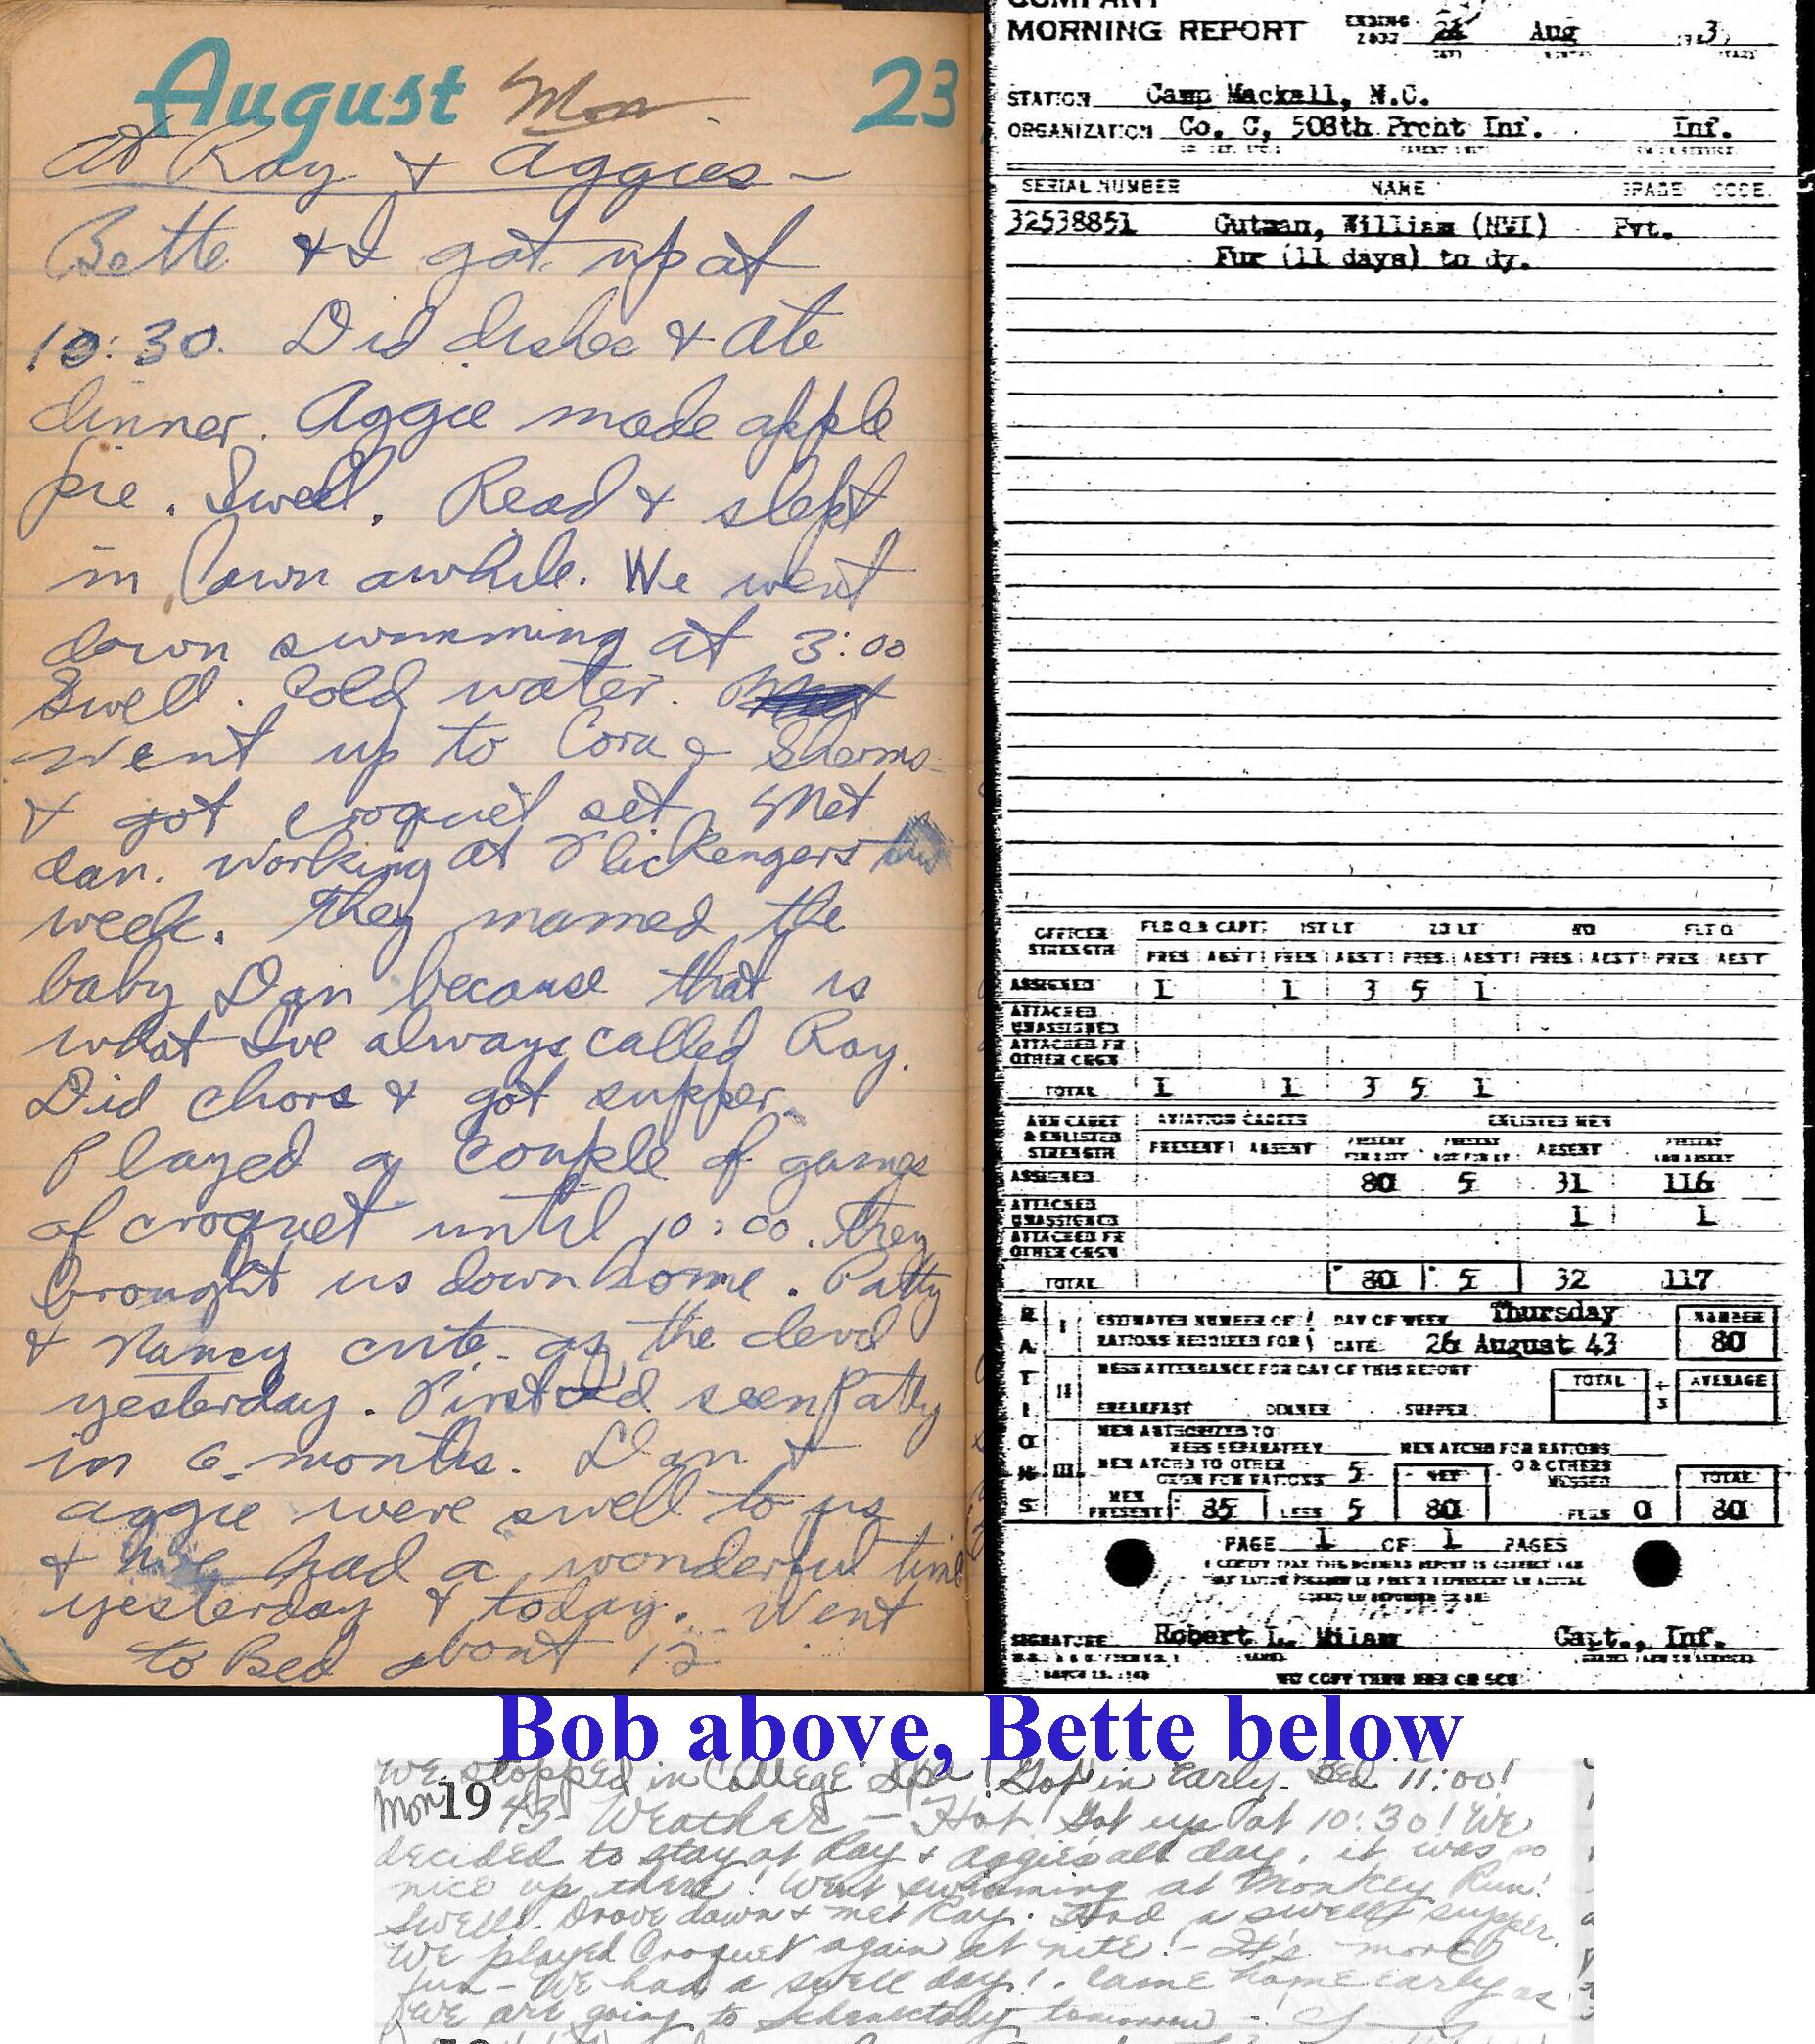 August Mon. 23
At Ray & Aggies -
Bette & I got up at
10:30. Did dishes & ate
dinner. Aggie made apple
pie. Swell. Read & slept
in lawn awhile. We went
down swimming at 3:00
Swell. Cold water.
Went up to Cora & Sherms
& got croquet set. Met
Dan. working at Flickengers this
week. They named the
baby Dan because that is
what I've always called Ray.
Did chors & got supper.
Played a couple of games
of croquet until 10:00. They
brought us down home. Patty
& Nancy cute as the devil
yesterday. First I'd seen Patty
in 6 months. Dan &
Aggie were swell to us
& we had a wonderful time
yesterday & today. Went
to Bed about 12
COMPANY
MORNING REPORT ENDING Aug
STATION Camp Mackall, N.C.
ORGANIZATION Co. C, 508th Prcht Inf. Inf.
SERIAL NUMBER NAME GRADE CODE
32538851 Gutman, William (NMI) Pvt.
Fur (11 days) to dy.
OFFICER STRENGTH FLD O & CAPT 1ST LT 2D LT WO FLT O
PRES ABST PRES ABST PRES ABST PRES ABST PRES ABST
ASSIGNED 1 1 3 5 1
ATTACHED UNASSIGNED
ATTACHED FR OTHER ORGN
TOTAL 1 1 3 5 1
AVN CADET & ENLISTED STRENGTH AVIATION CADETS ENLISTED MEN
PRESENT ABSENT PRESENT FOR DUTY PRESENT NOT FOR DY ABSENT PRESENT AND ABSENT
ASSIGNED 80 5 31 116
ATTACHED UNASSIGNED 1 1
ATTACHED FR OTHER ORGN
TOTAL 80 5 32 117
RATIONS
I ESTIMATED NUMBER OF RATIONS REQUIRED FOR DAY OF WEEK Thursday NUMBER
DATE 26 August 43 80
II MESS ATTENDANCE FOR DAY OF THIS REPORT TOTAL ÷ 3 AVERAGE
BREAKFAST DINNER SUPPER
III MEN AUTHORIZED TO MESS SEPARATELY MEN ATCHD FOR RATIONS
MEN ATCHD TO OTHER ORGN FOR RATIONS 5 NET O & OTHERS MESSED TOTAL
MEN PRESENT 85 LESS 5 80 PLUS 0 80
PAGE 1 OF 1 PAGES
I CERTIFY THAT THIS MORNING REPORT IS CORRECT
SIGNATURE Robert L. Milam Capt., Inf.
Bob above, Bette below
We stopped in College Spa! Got in Early. Bed 11:00!
Mon 19 43 - Weather - Hot! Got up at 10:30! We
decided to stay at Ray & Aggie's all day, it was so
nice up there! Went swimming at Monkey Run!
Swell! Drove down & met Ray. Had a swell supper.
We played Croquet again at nite! - It's more
fun - We had a swell day! Came home early as
we are going to Schenectady tomorrow -